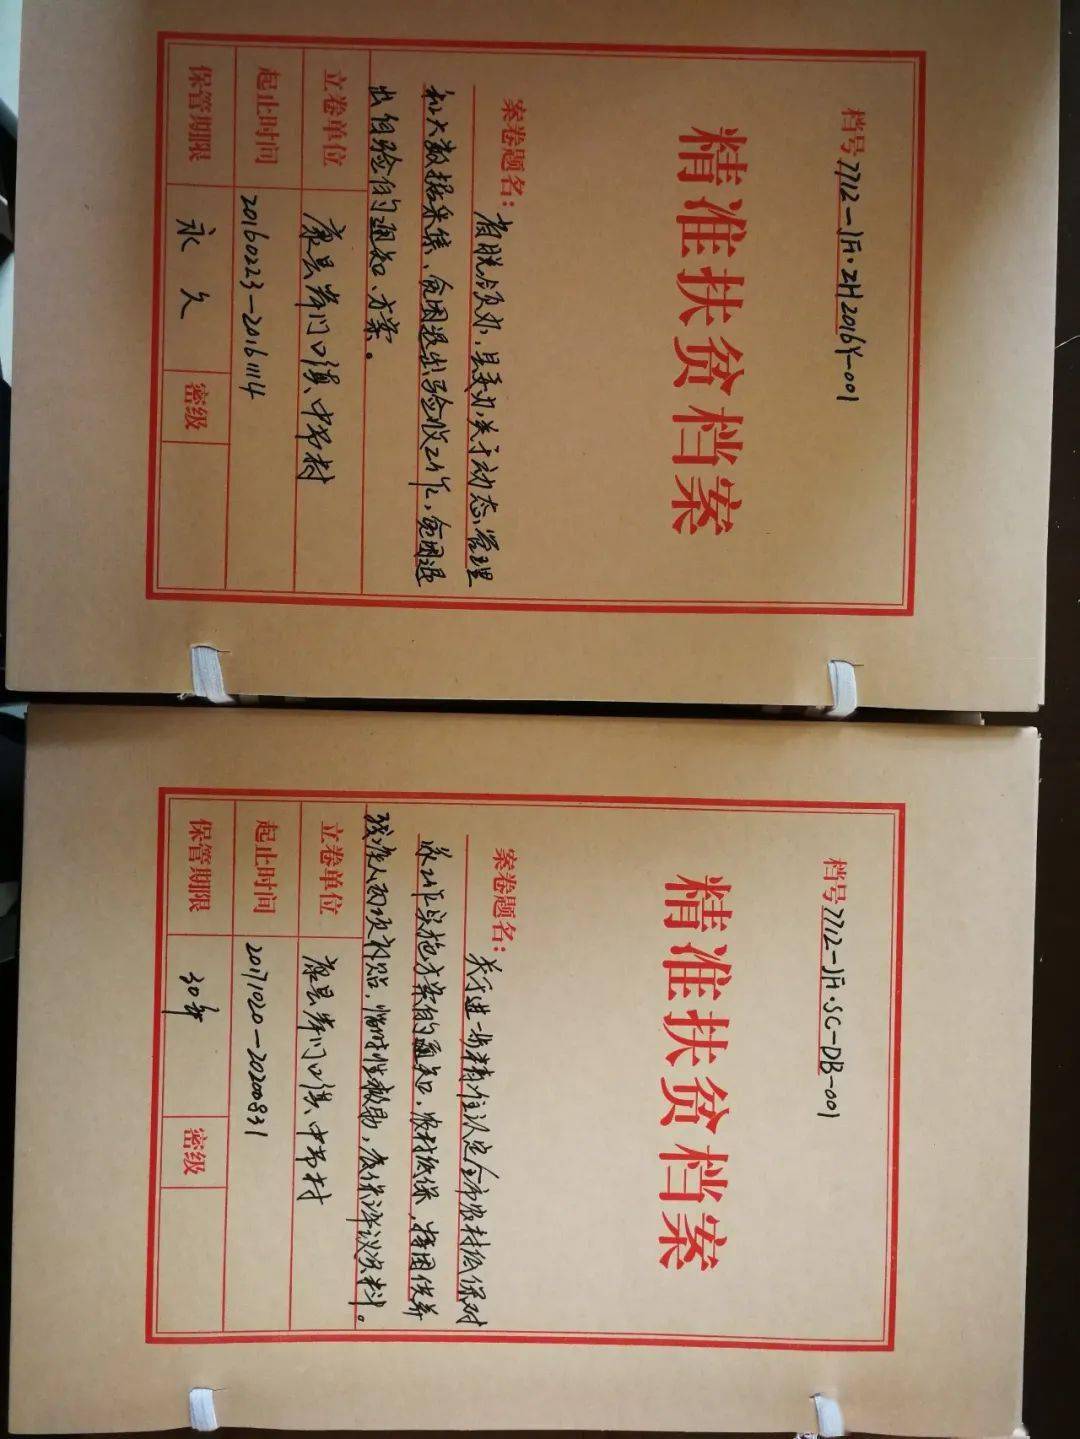 档号7712-JF·ZH2016Y-001
精准扶贫档案
案卷题名：省脱贫领办、县委办关于动态管理
和大数据采集、贫困退出验收工作，贫困退
出组验收的通知、方案。
立卷单位 康县岸门口镇中节村
起止时间 20160223-20161114
保管期限 永久 密级
档号7712-JF·SC-DB-001
精准扶贫档案
案卷题名：关于进一步精准认定全市农村低保对
象工作实施方案的通知，农村低保，特困供养
残疾人两项补贴，临时性救助，低保评议资料。
立卷单位 康县岸门口镇中节村
起止时间 20171020-20200831
保管期限 30年 密级